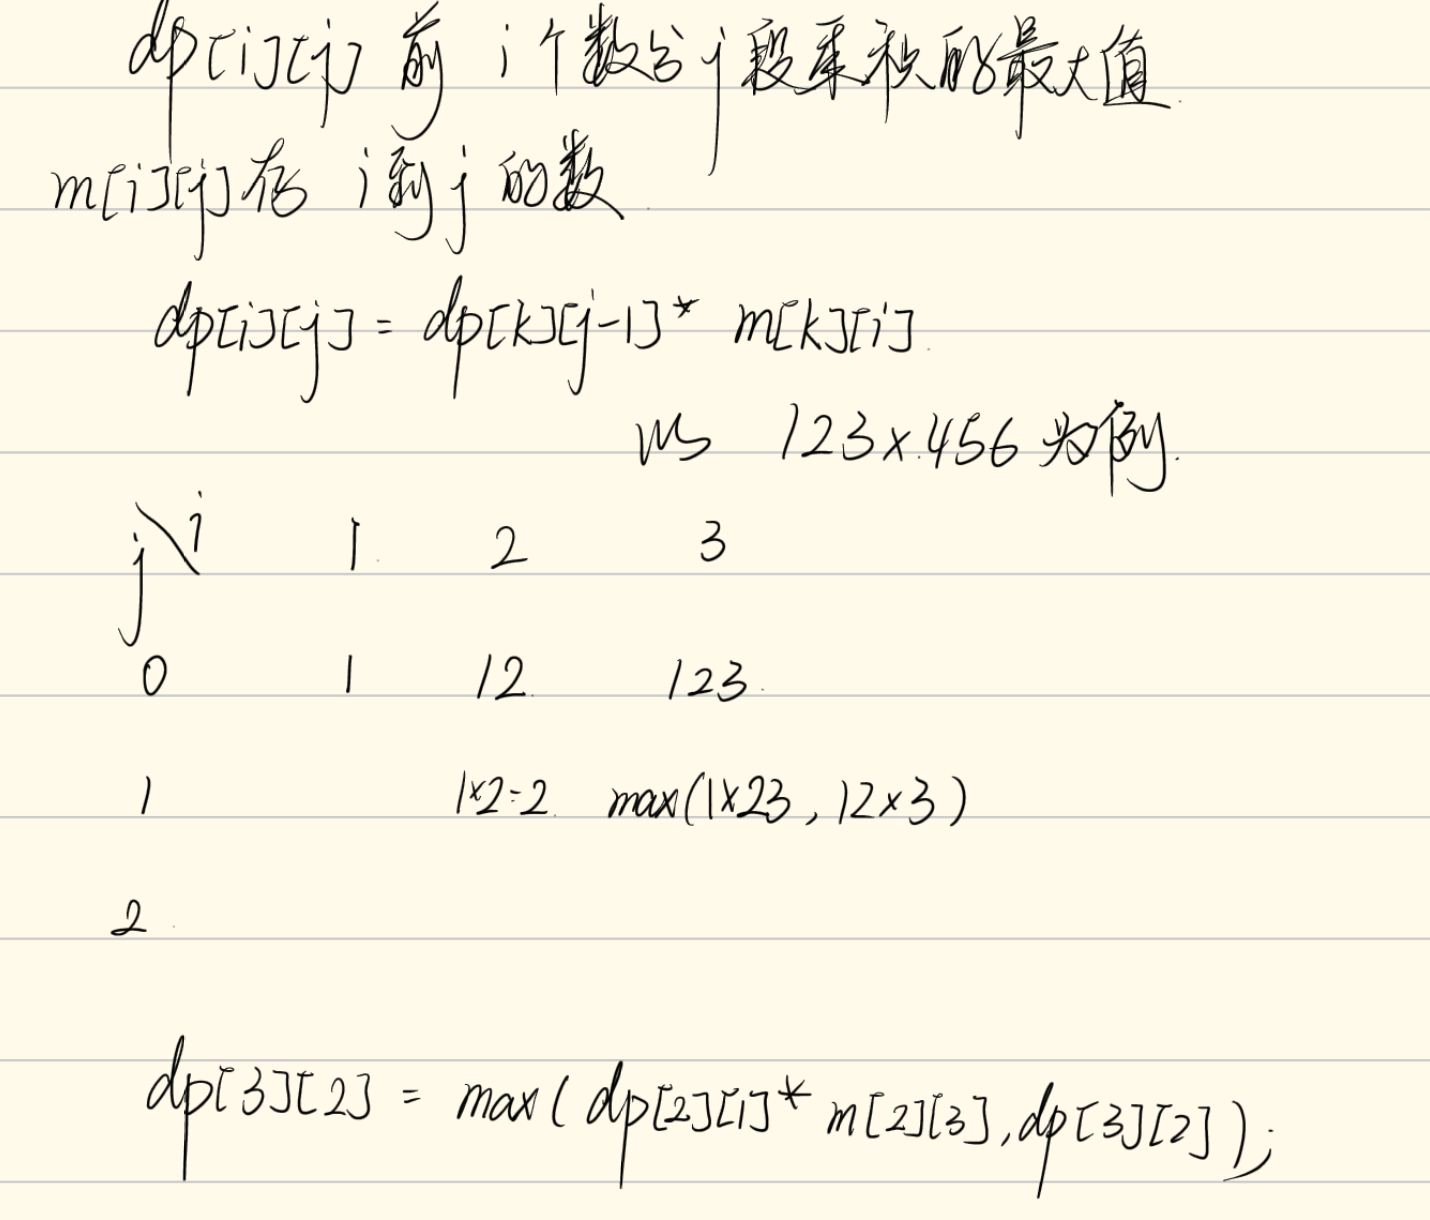 dp[i][j] 前 i个数分j段乘积的最大值
m[i][j]存 i到j的数
dp[i][j] = dp[k][j-1]* m[k][i]
以 123×456为例.
j\i 1 2 3
0 1 12 123
1 1×2=2 max(1×23, 12×3)
2
dp[3][2] = max( dp[2][1]* m[2][3], dp[3][2]);